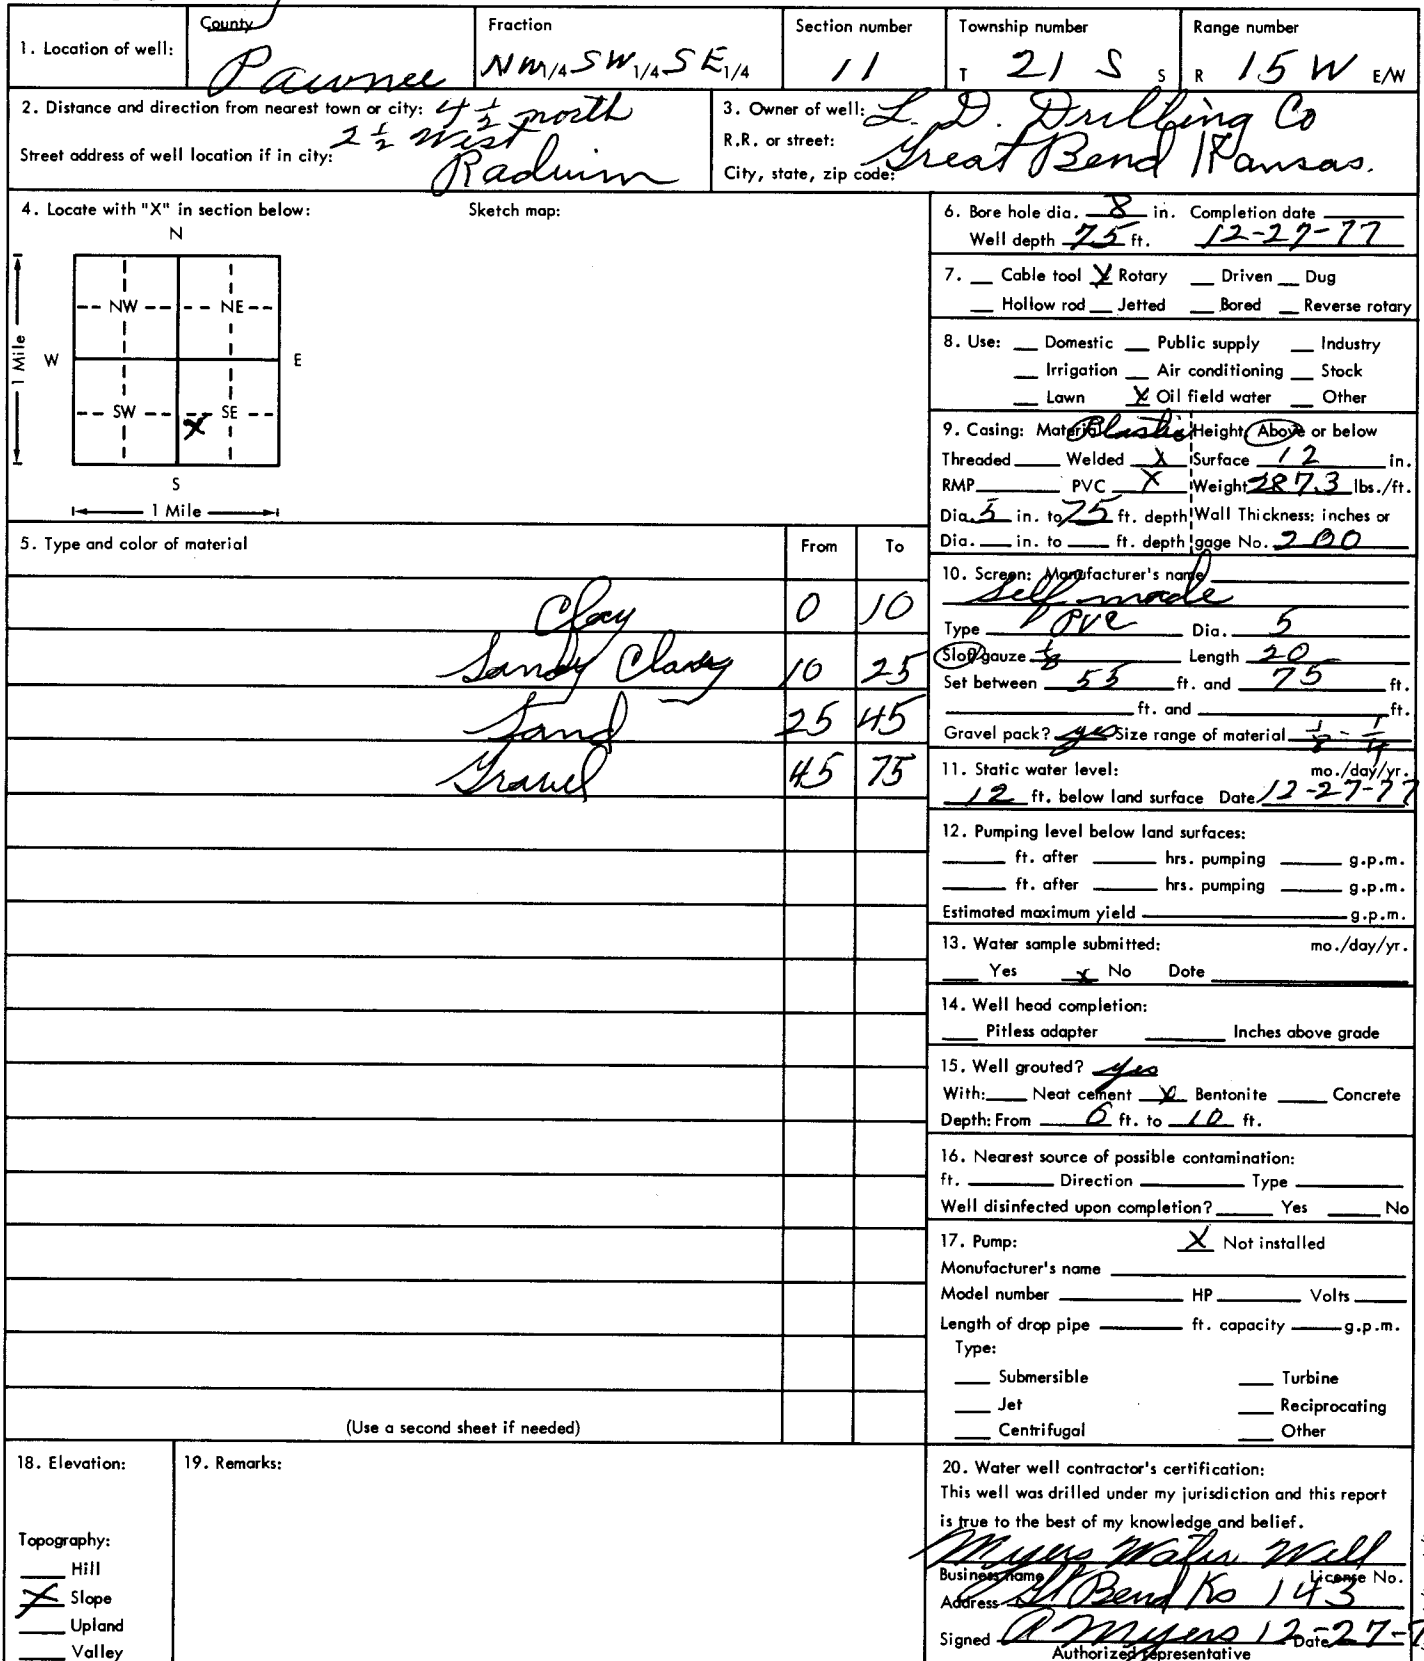 1. Location of well:
County
Pawnee
Fraction
NW 1/4 SW 1/4 SE 1/4
Section number
11
Township number
T 21 S S
Range number
R 15 W E/W
2. Distance and direction from nearest town or city: 4 1/2 north
2 1/2 West
Street address of well location if in city:
Radium
3. Owner of well: L. D. Drilling Co
R.R. or street:
City, state, zip code: Great Bend Kansas.
4. Locate with "X" in section below:
Sketch map:
N
NW NE
W E
1 Mile
SW SE
X
S
1 Mile
5. Type and color of material From To
Clay 0 10
Sandy Clay 10 25
Sand 25 45
Gravel 45 75
(Use a second sheet if needed)
6. Bore hole dia. 8 in. Completion date
Well depth 75 ft. 12-27-77
7. Cable tool X Rotary Driven Dug
Hollow rod Jetted Bored Reverse rotary
8. Use: Domestic Public supply Industry
Irrigation Air conditioning Stock
Lawn X Oil field water Other
9. Casing: Material Plastic Height: Above or below
Threaded Welded X Surface 12 in.
RMP PVC X Weight 2873 lbs./ft.
Dia. 5 in. to 75 ft. depth Wall Thickness: inches or
Dia. in. to ft. depth gage No. 200
10. Screen: Manufacturer's name
Self made
Type PVC Dia. 5
Slot/gauze 1/8 Length 20
Set between 55 ft. and 75 ft.
ft. and ft.
Gravel pack? yes Size range of material 1/8 - 1/4
11. Static water level: mo./day/yr.
12 ft. below land surface Date 12-27-77
12. Pumping level below land surfaces:
ft. after hrs. pumping g.p.m.
ft. after hrs. pumping g.p.m.
Estimated maximum yield g.p.m.
13. Water sample submitted: mo./day/yr.
Yes X No Date
14. Well head completion:
Pitless adapter Inches above grade
15. Well grouted? yes
With: Neat cement X Bentonite Concrete
Depth: From 0 ft. to 10 ft.
16. Nearest source of possible contamination:
ft. Direction Type
Well disinfected upon completion? Yes No
17. Pump: X Not installed
Manufacturer's name
Model number HP Volts
Length of drop pipe ft. capacity g.p.m.
Type:
Submersible Turbine
Jet Reciprocating
Centrifugal Other
18. Elevation:
Topography:
Hill
X Slope
Upland
Valley
19. Remarks:
20. Water well contractor's certification:
This well was drilled under my jurisdiction and this report
is true to the best of my knowledge and belief.
Myers Water Well
Business name License No.
Address Gt Bend Ks 143
Signed Myers Date 12-27-7
Authorized representative